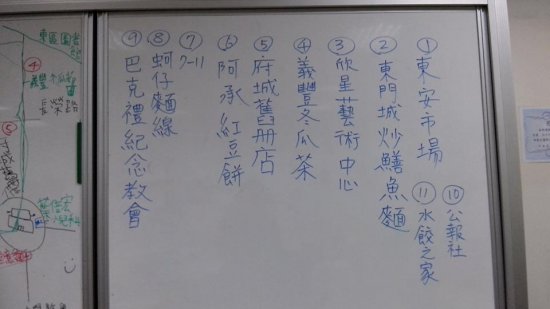 ①東安市場
②東門城炒鱔魚麵
③欣星藝術中心
④義豐冬瓜茶
⑤府城舊冊店
⑥阿承紅豆餅
⑦7-11
⑧蚵仔麵線
⑨巴克禮紀念教會
⑩公報社
⑪水餃之家
④
長榮路
⑤